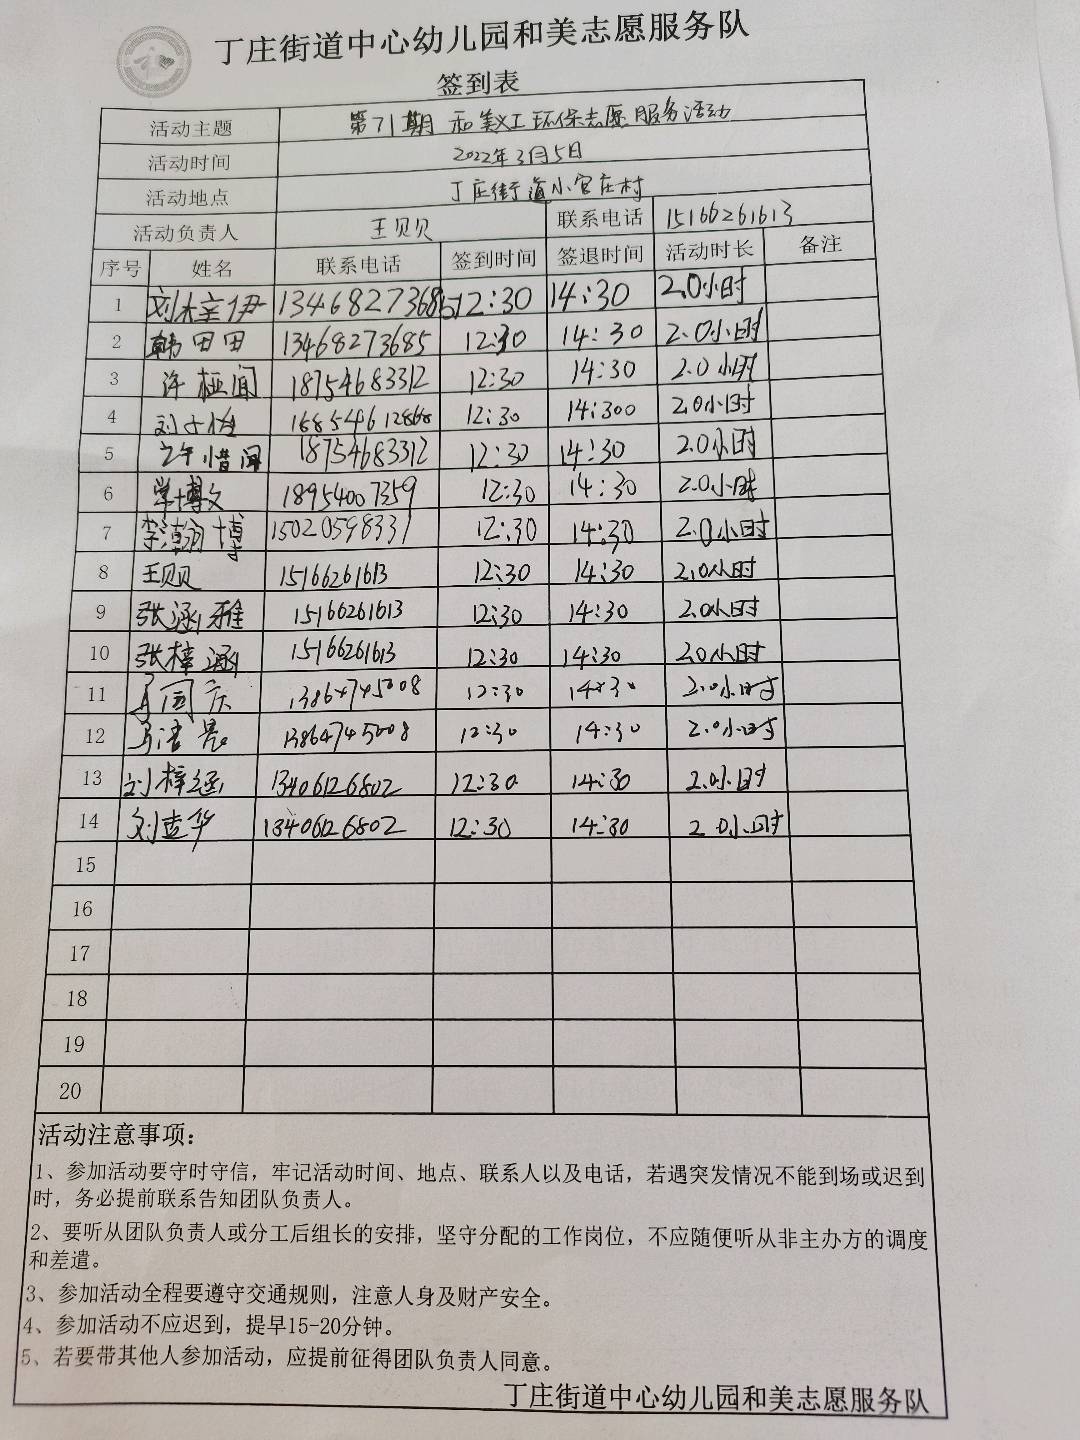 丁庄街道中心幼儿园和美志愿服务队
签到表
活动主题 第71期 和美义工环保志愿服务活动
活动时间 2022年3月5日
活动地点 丁庄街道小官庄村
活动负责人 王贝贝 联系电话 15166261613
序号 姓名 联系电话 签到时间 签退时间 活动时长 备注
1 刘梓伊 13468273685 12:30 14:30 2.0小时
2 韩田田 13468273685 12:30 14:30 2.0小时
3 许桠闻 18754683312 12:30 14:30 2.0小时
4 12:30 14:300 2.0小时
5 许惜闻 18754683312 12:30 14:30 2.0小时
6 博文 18954007359 12:30 14:30 2.0小时
7 李瀚博 15020598331 12:30 14:30 2.0小时
8 王贝贝 15166261613 12:30 14:30 2.0小时
9 张涵雅 15166261613 12:30 14:30 2.0小时
10 张梓涵 15166261613 12:30 14:30 2.0小时
11 国庆 13864745008 12:30 14:30 2.0小时
12 13864745008 12:30 14:30 2.0小时
13 刘梓涵 13406126802 12:30 14:30 2.0小时
14 刘壹华 13406126802 12:30 14:30 2.0小时
15
16
17
18
19
20
活动注意事项：
1、参加活动要守时守信，牢记活动时间、地点、联系人以及电话，若遇突发情况不能到场或迟到
时，务必提前联系告知团队负责人。
2、要听从团队负责人或分工后组长的安排，坚守分配的工作岗位，不应随便听从非主办方的调度
和差遣。
3、参加活动全程要遵守交通规则，注意人身及财产安全。
4、参加活动不应迟到，提早15-20分钟。
5、若要带其他人参加活动，应提前征得团队负责人同意。
丁庄街道中心幼儿园和美志愿服务队